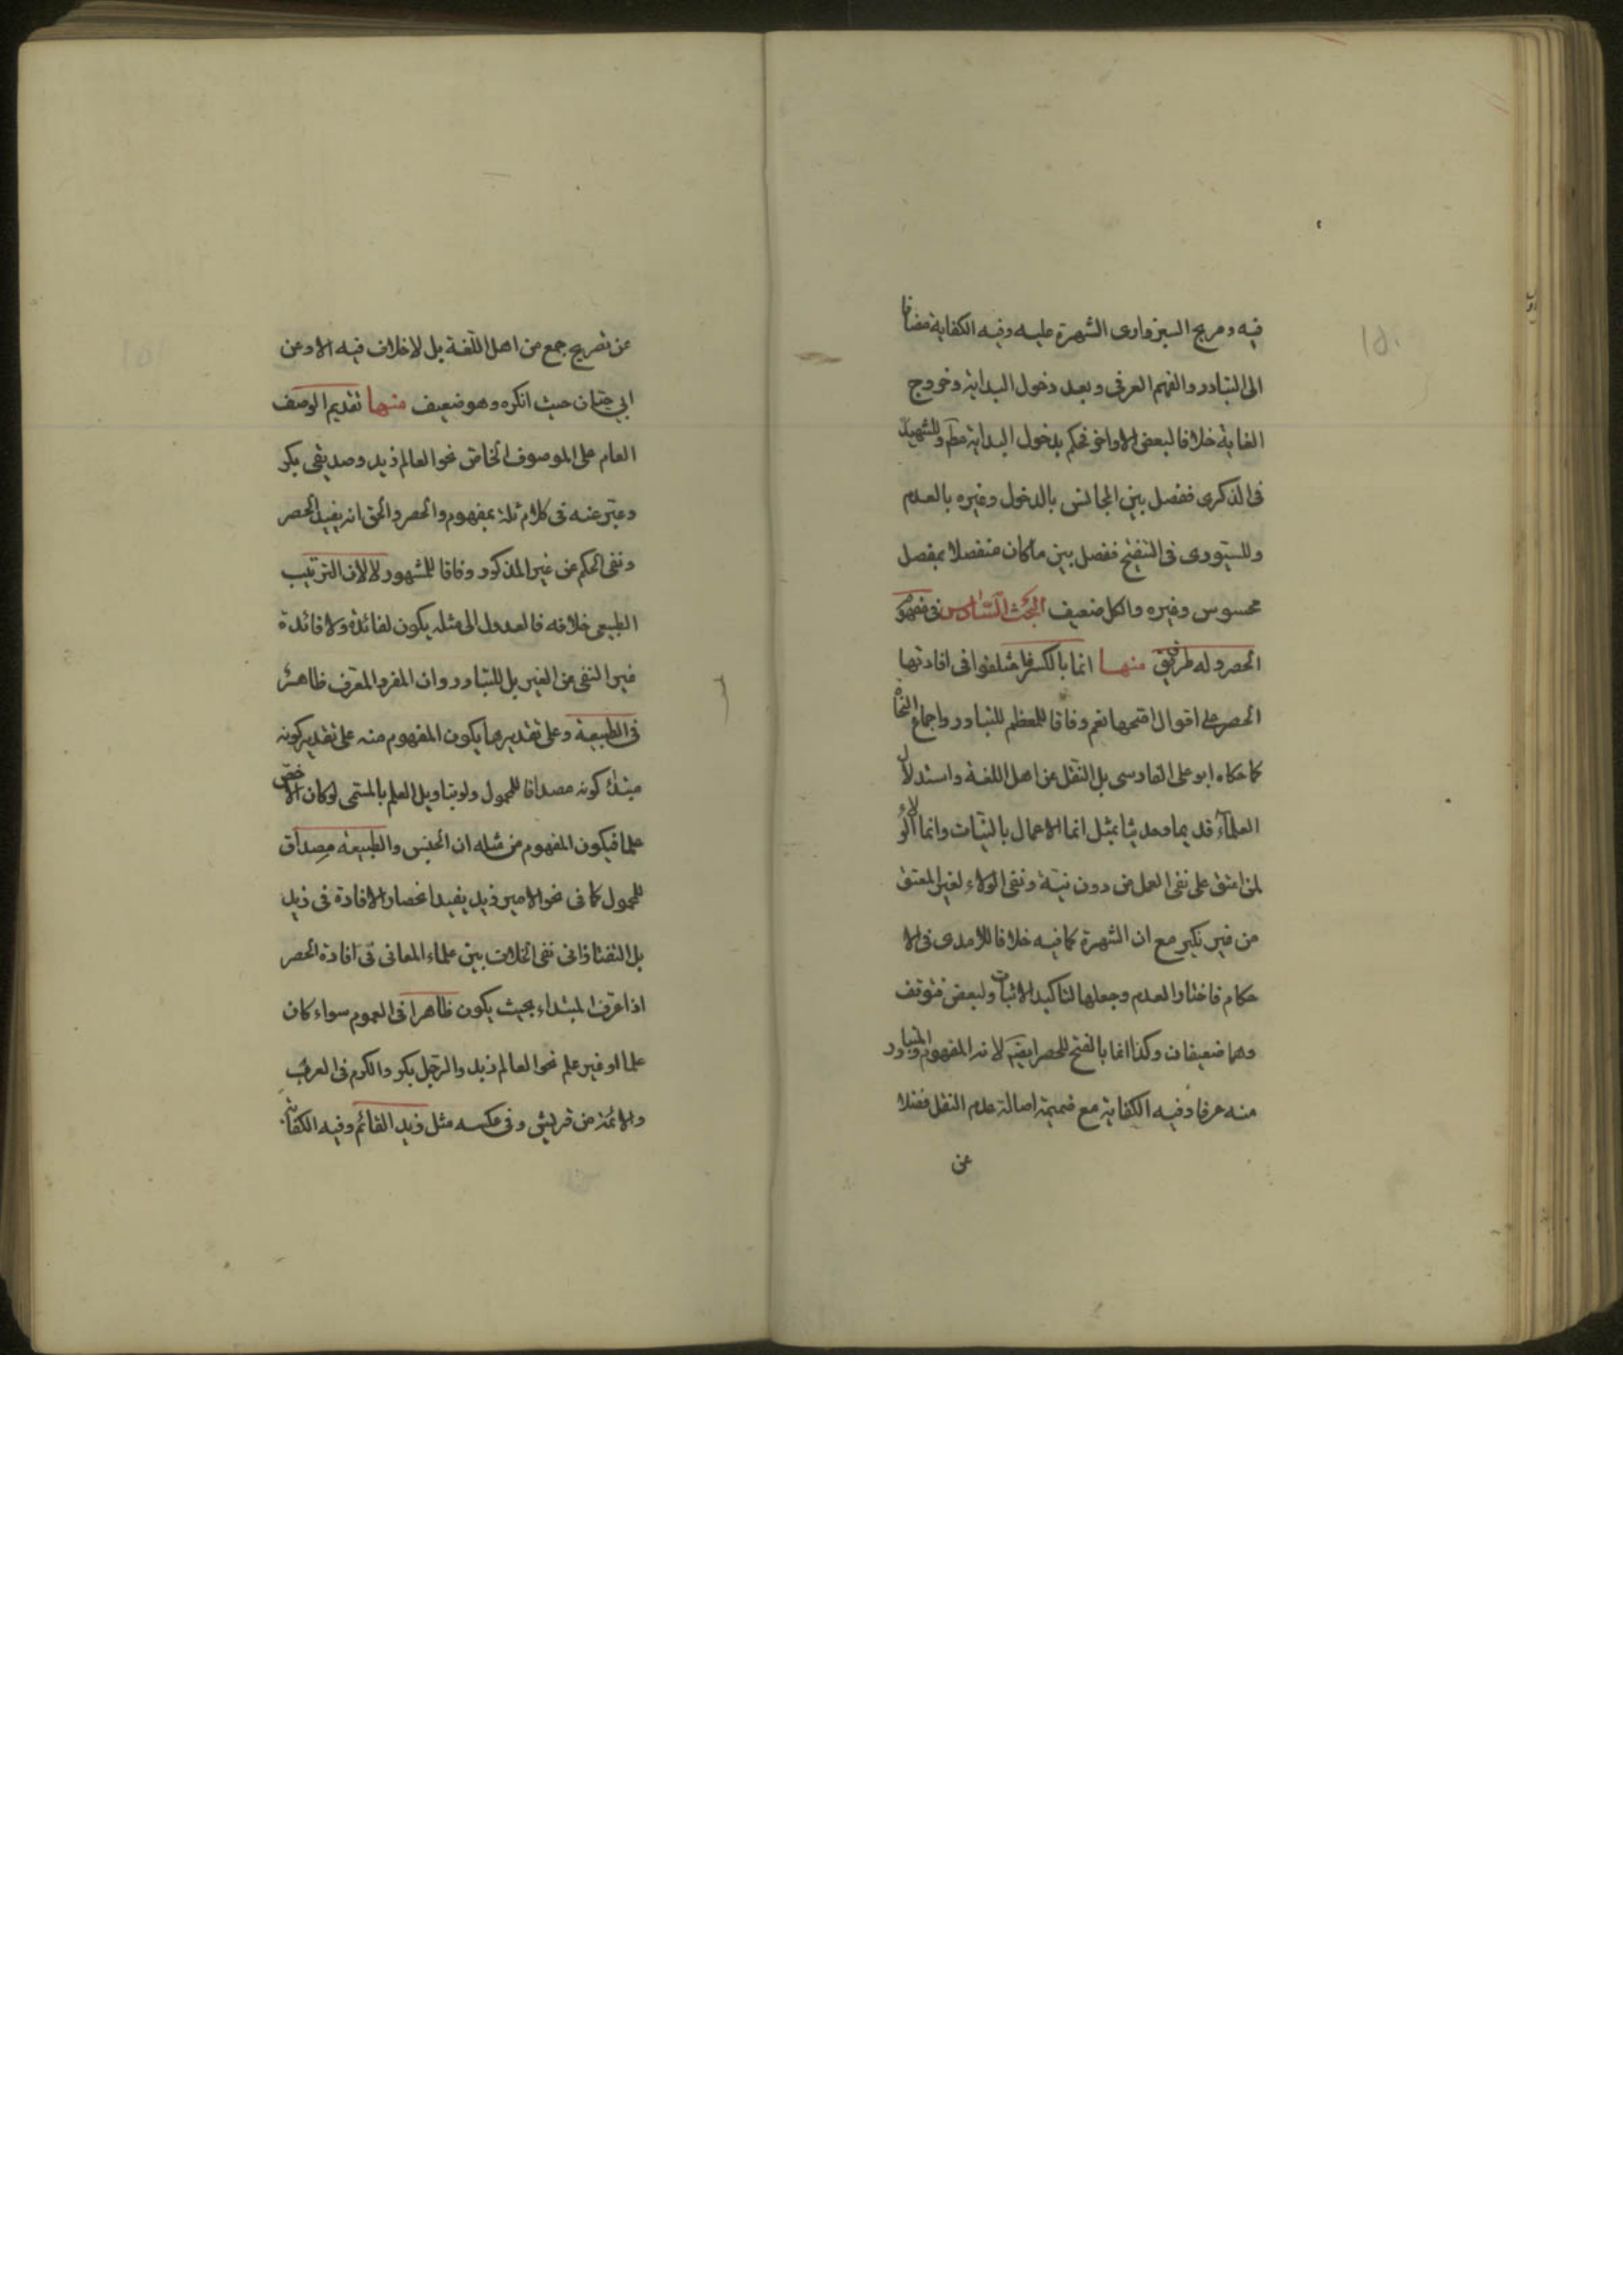 فيه وصريح السبزوارى الشهرة عليه وفيه الكفاية مضافا
الى التبادر والفهم العرفى وبعد دخول البداية وخروج
الغاية خلافا لبعض الاواخر فحكم بدخول البداية مط وللشهيد
فى الذكرى ففصل بين المجانس بالدخول وغيره بالعدم
وللسيورى فى التنقيح ففصل بين ماكان منفصلا بمفصل
محسوس وغيره والكل ضعيف البحث السادس فى مفهوم
الحصر وله طرق منها انما بالكسر فاختلفوا فى افادتها
الحصر على اقوال اصحها نعم وفاقا للمعظم للتبادر واجماع النحاة
كما حكاه ابو على الفارسى بل النقل عن اهل اللغة واستدلال
العلماء قديما وحديثا بمثل انما الاعمال بالنيات وانما الولاء
لمن اعتق على نفى العمل من دون نية ونفى الولاء لغير المعتق
من غير نكير مع ان الشهرة كافيه خلافا للامدى فى الا
حكام فاختار العدم وجعلها لتاكيد الاثبات ولبعض فتوقف
وهما ضعيفان وكذا انما بالفتح للحصر ايضا لانه المفهوم والمتبادر
منه عرفا وفيه الكفاية مع ضميمة اصالة عدم النقل فضلا
عن
عن تصريح جمع من اهل اللغة بل لا خلاف فيه الا من
ابي حيان حيث انكره وهو ضعيف منها تقديم الوصف
العام على الموصوف الخاص نحو العالم زيد وصديقى بكر
وعبر عنه فى كلام ثلة بمفهوم والحصر والحق انه يفيد الحصر
ونفى الحكم عن غير المذكور وفاقا للمشهور لا لان الترتيب
الطبيعى خلافه فالعدول الى مثله يكون لفائدة ولا فائدة
غير النفى عن الغير بل للتبادر وان المفرد المعرف ظاهر
فى الطبيعة وعلى تقديرها يكون المفهوم منه على تقدير كونه
مبتدأ كونه مصداقا للمحمول ولو بتاويل العلم بالمسمى لو كان الاخص
علما فيكون المفهوم من مثله ان الجنس والطبيعة مصداق
للمحمول كما فى نحو الامير زيد يفيد انحصار الافادة فى زيد
بل التفتازانى نفى الخلاف بين علماء المعانى فى افادة الحصر
اذا عرف المبتداء بحيث يكون ظاهرا فى العموم سواء كان
علما او غير علم نحو العالم زيد والرجل بكر والكرم فى العرب
والائمة من قريش وفى عكسه مثل زيد القائم وفيه الكفاية